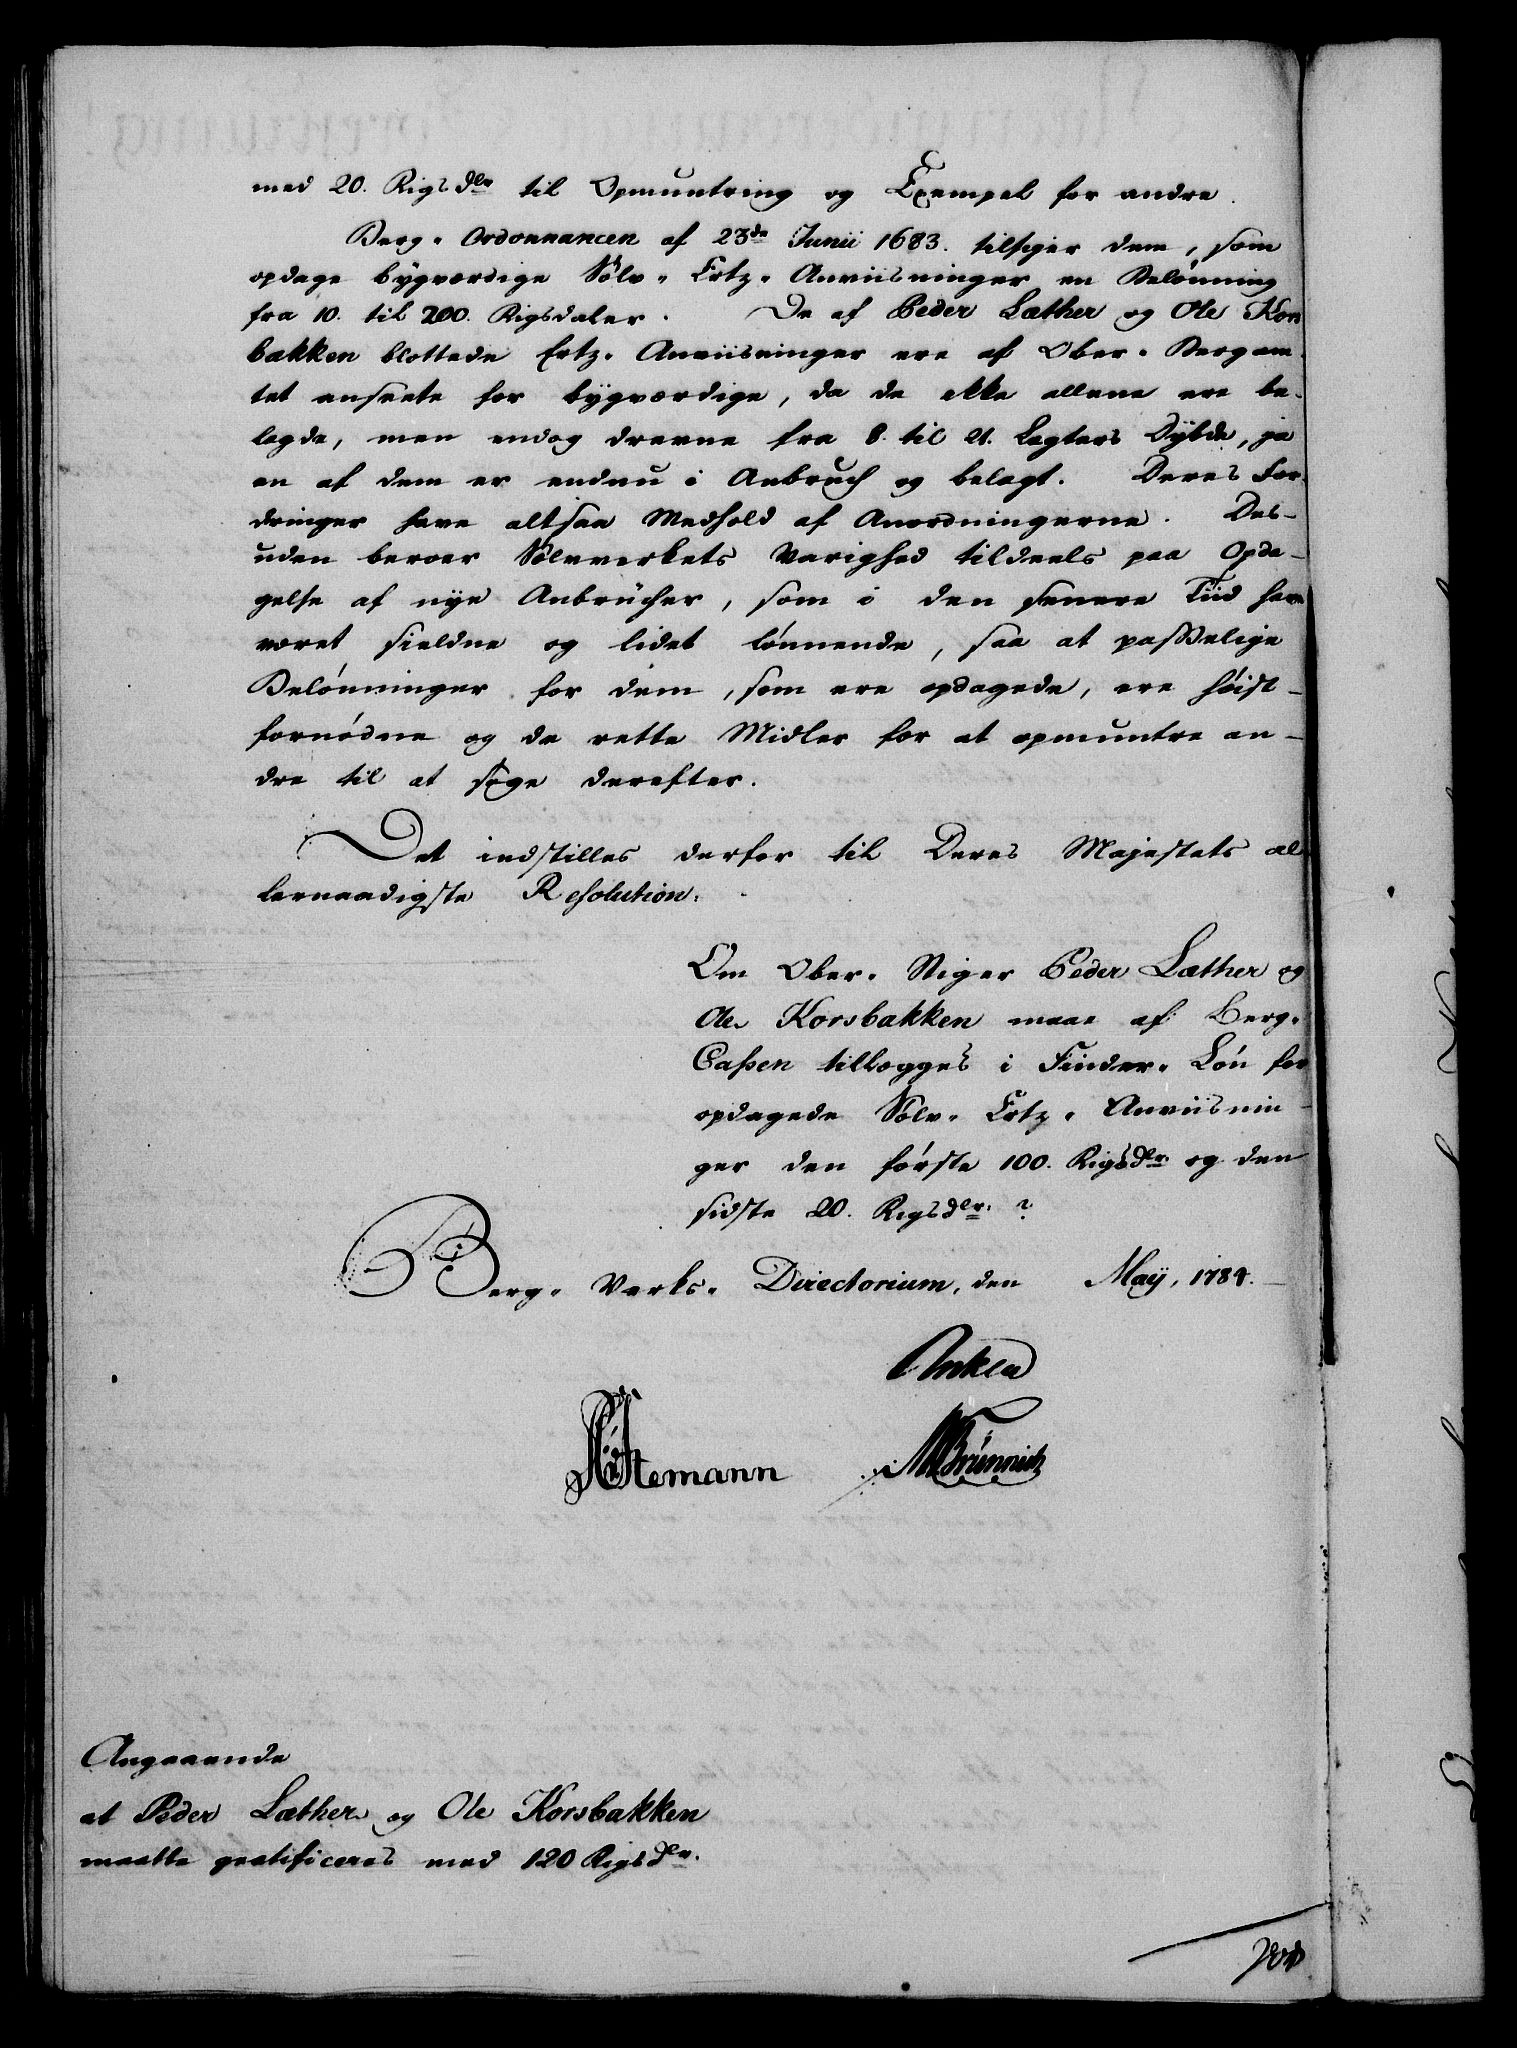 med 20. Rigsdlr til Opmuntring og Exempel for andre.
Berg-Ordonnancen af 23de Junii 1683. tilsiger dem, som
opdage bygværdige Sølv-Ertz-Anviisninger en Belønning
fra 10. til 200. Rigsdaler. De af Peder Læther og Ole Kors
bakken blottede Ertz-Anviisninger ere af Ober-Bergam-
tet anseete for bygværdige, da de ikke allene ere be-
lagde, men endog drevne fra 8. til 21. Lagters Dybde, ja
en af dem er endnu i Anbruch og belagt. Deres For-
dringer have altsaa Medhold af Anordningerne. Des-
uden beroer Sølvverkets Varighed tildeels paa Opda-
gelse af nye Anbrücher, som i den senere Tiid have
været sieldne og lidet lønnende, saa at passelige
Belønninger for dem, som ere opdagede, ere høist-
fornødne og de rette Midler for at opmuntre an-
dre til at søge derefter.
Det indstilles derfor til Deres Majestets al-
lernaadigste Resolution:
Om Ober-Stiger Peder Læther og
Ole Korsbakken maae af Berg-
Cassen tillægges i Finder-Løn for
opdagede Sølv-Ertz-Anviisnin-
ger den første 100. Rigsdlr og den
sidste 20. Rigsdlr. ?
Berg-Verks-Directorium, den May, 1784.
Anker
Stemann MBrünnich
Angaaende
at Peder Læther og Ole Korsbakken
maatte gratificeres med 120 Rigsdlr.